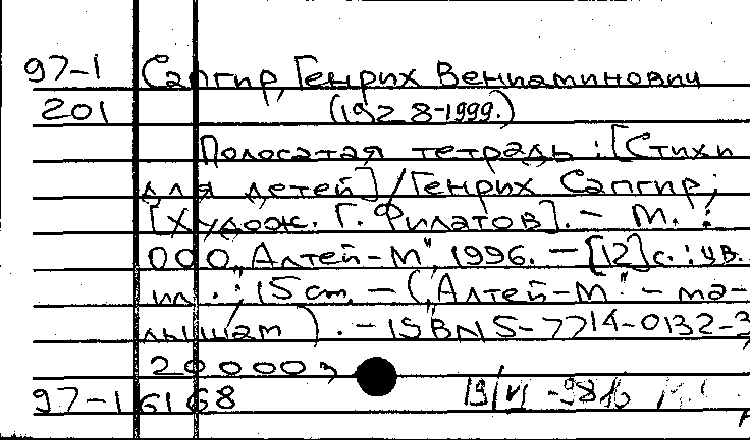 97-1 Сапгир, Генрих Вениаминович
201 (1928-1999.)
Полосатая тетрадь : [Стихи
для детей] / Генрих Сапгир;
[Худож. Г. Филатов]. - М. :
ООО „Алтей-М“, 1996. - [12] с. : цв.
ил. ; 15 см. - („Алтей-М“ - ма-
лышам). - ISBN 5-7714-0132-3,
20000э
97-1 6168 19/VI -98